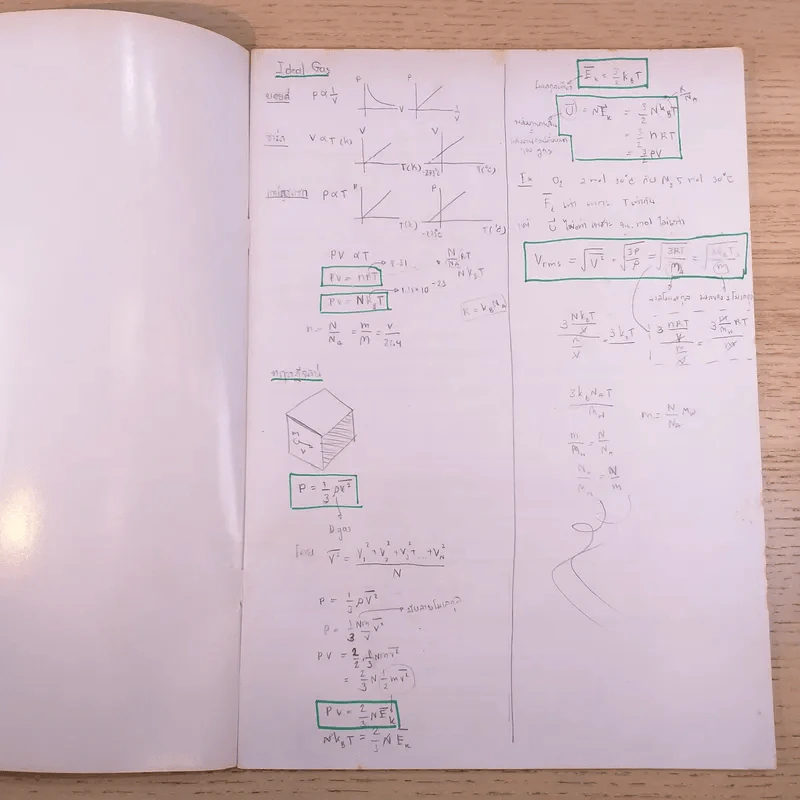 Ideal Gas
บอยล์ P ∝ 1/V P V P 1/V
ชาร์ล V ∝ T (k) V T(k) V -273°C T(°C)
P ∝ T P T(k) P -273°C T(°C)
PV ∝ T
PV = nRT 8.31 N/NA RT
PV = NkBT 1.38×10^-23 NkBT
R = kBNA
n = N/NA = m/M = V/22.4
ทฤษฎีจลน์
V
P = 1/3 ρV̄²
D gas
โดย V̄² = (V₁² + V₂² + V₃² + ... + VN²)/N
P = 1/3 ρV̄²
P = 1/3 Nm/V V̄²
PV = 2/2 · 1/3 Nmv̄²
= 2/3 N (1/2 mv̄²)
PV = 2/3 NĒk
NkBT = 2/3 NĒk
Ēk = 3/2 kBT
U = NĒk = 3/2 NkBT R/NA
= 3/2 nRT
= 3/2 PV
Ex O₂ 2 mol 30°C กับ N₂ 5 mol 30°C
Ēk เท่า เพราะ T เท่ากัน
แต่ U ไม่เท่า เพราะ จน. mol ไม่เท่า
Vrms = √V̄² = √(3P/ρ) = √(3RT/M) = √(3kBT/m)
3 (NkBT/V)/(m/V) = 3kBT 3 (nRT/V)/(m/V) = 3 (m/Mw) RT/m
3kBNAT/Mw m = N/NA Mw
m/Mw = N/NA
NA/Mw = N/m